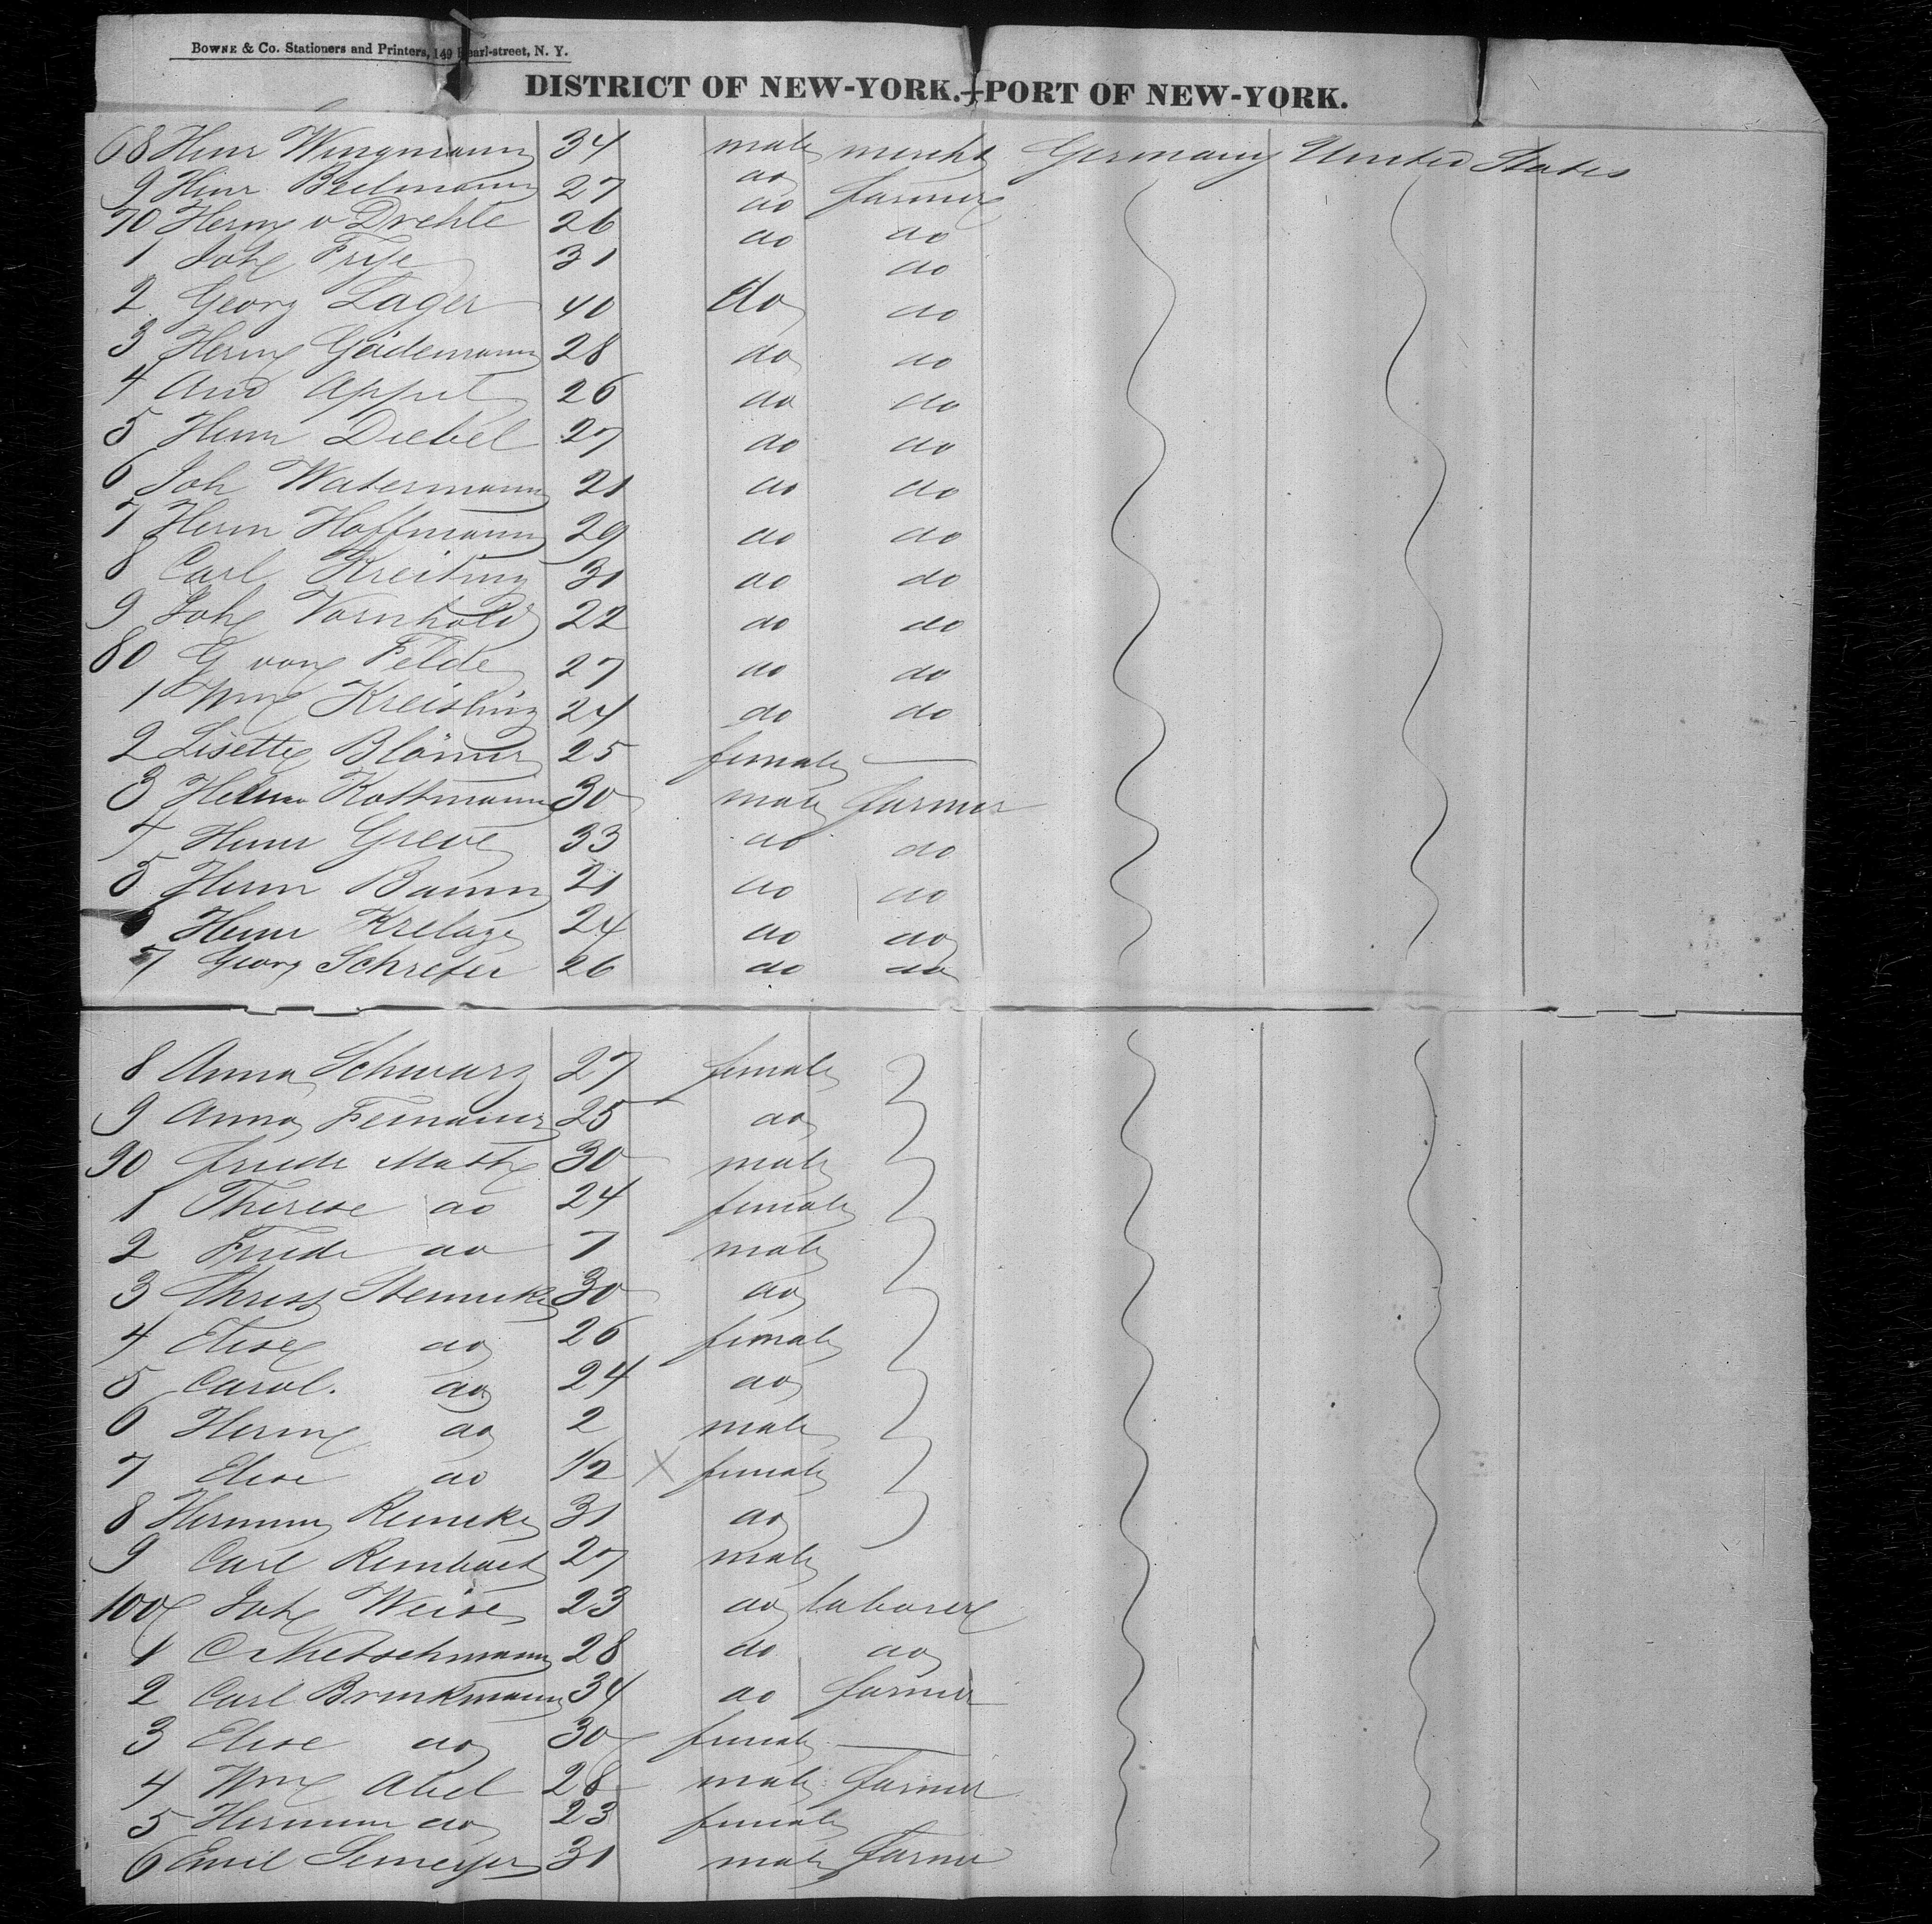 BOWNE & Co. Stationers and Printers, 149 Pearl-street, N. Y.
DISTRICT OF NEW-YORK.—PORT OF NEW-YORK.
68 Heinr Wingmann 34 male mercht Germany United States
9 Heinr Beelmann 27 do farmer
70 Herm v Drehle 26 do do
1 Joh Frye 31 do do
2 Georg Lager 40 do do
3 Herm Gädemann 28 do do
4 And Appel 26 do do
5 Heinr Diebel 27 do do
6 Joh Watermann 21 do do
7 Herm Hoffmann 29 do do
8 Carl Kreiting 31 do do
9 Joh Vornhold 22 do do
80 G von Felde 27 do do
1 Wm Kreisling 24 do do
2 Lisette Blömer 25 female —
3 Kottmann 30 male farmer
4 Heinr Greve 33 do do
5 Herm Baum 21 do do
Heinr Krelage 24 do do
7 Georg Schrefer 26 do do
8 Anna Schwarz 27 female
9 Anna 25 do
90 Friedr Math 30 male
1 Therese do 24 female
2 Friedr do 7 male
3 Christ Steinucke 30 do
4 Elise do 26 female
5 Carol. do 24 do
6 Herm do 2 male
7 Elise do 1/2 X female
8 Hermine Reineke 31 do
9 Carl 27 male
100 Joh Weise 23 do laborer
1 C Kletschmann 28 do do
2 Carl Brinkmann 34 do farmer
3 Elise do 30 female —
4 Wm Abel 28 male farmer
5 Hermine do 23 female
6 Emil Semeyer 31 male farmer